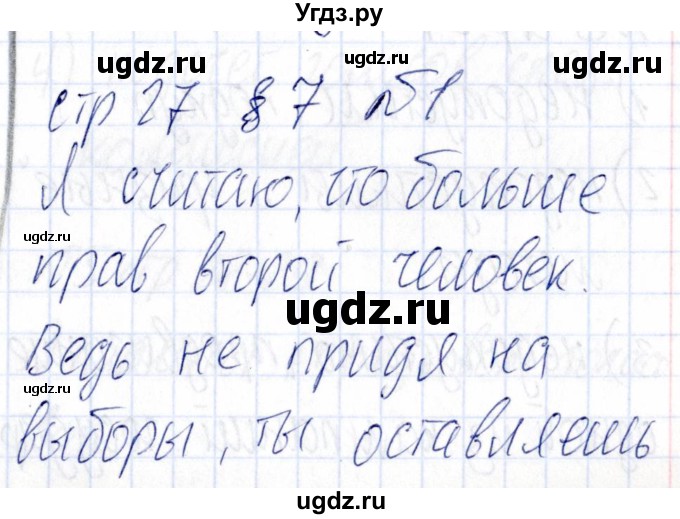 Угдз.ру
ugdz.ru
ugdz.ru
стр 27 § 7 №1
Я считаю, что больше
ugdz.ru
прав второй человек.
ugdz.ru
Ведь не придя на
ugdz.ru
выборы, ты оставляешь
ugdz.ru